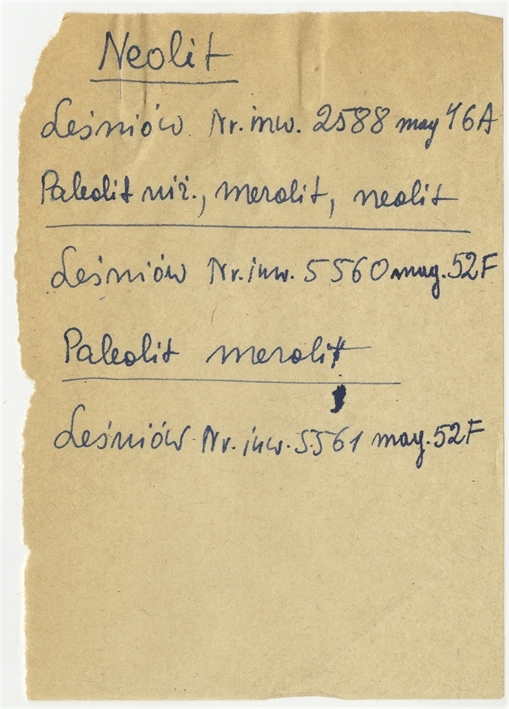 Neolit
Leśniów Nr. inw. 2588 mag 16A
Paleolit niż., mezolit, neolit
Leśniów Nr. inw. 5560 mag. 52F
Paleolit mezolit
Leśniów Nr. inw. 5561 mag. 52F